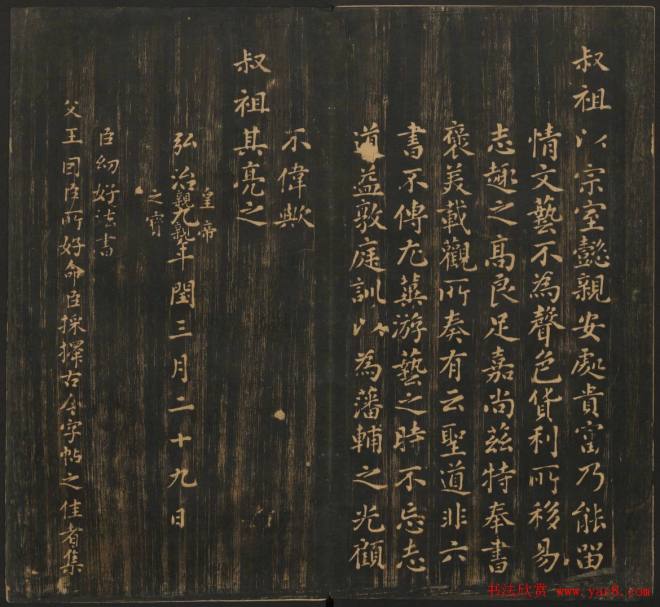 叔祖以宗室懿親安處貴富乃能留
情文藝不為聲色貨利所移易
志趣之高良足嘉尚茲特奉書
褒美載觀所奏有云聖道非六
書不傳尤冀游藝之時不忘志
道益敦庭訓以為藩輔之光顧
不偉歟
叔祖其亮之
皇帝
親親
之寶
弘治九年閏三月二十九日
臣幼好法書
父王因臣所好命臣採擇古今字帖之佳者集
书法欣赏 www.yac8.com